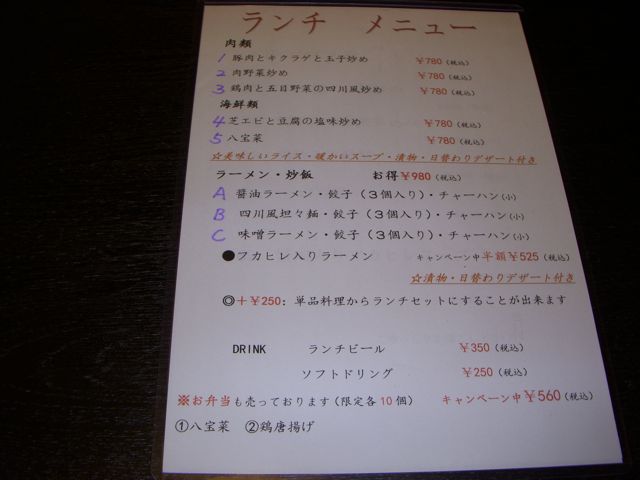 ランチ メニュー
肉類
1 豚肉とキクラゲと玉子炒め ￥780(税込)
2 肉野菜炒め ￥780(税込)
3 鶏肉と五目野菜の四川風炒め ￥780(税込)
海鮮類
4 芝エビと豆腐の塩味炒め ￥780(税込)
5 八宝菜 ￥780(税込)
☆美味しいライス・暖かいスープ・漬物・日替わりデザート付き
ラーメン・炒飯 お得￥980(税込)
A 醤油ラーメン・餃子(3個入り)・チャーハン(小)
B 四川風坦々麺・餃子(3個入り)・チャーハン(小)
C 味噌ラーメン・餃子(3個入り)・チャーハン(小)
●フカヒレ入りラーメン キャンペーン中半額￥525(税込)
☆漬物・日替わりデザート付き
◎＋￥250：単品料理からランチセットにすることが出来ます
DRINK ランチビール ￥350(税込)
ソフトドリング ￥250(税込)
※お弁当も売っております(限定各10個) キャンペーン中￥560(税込)
①八宝菜 ②鶏唐揚げ